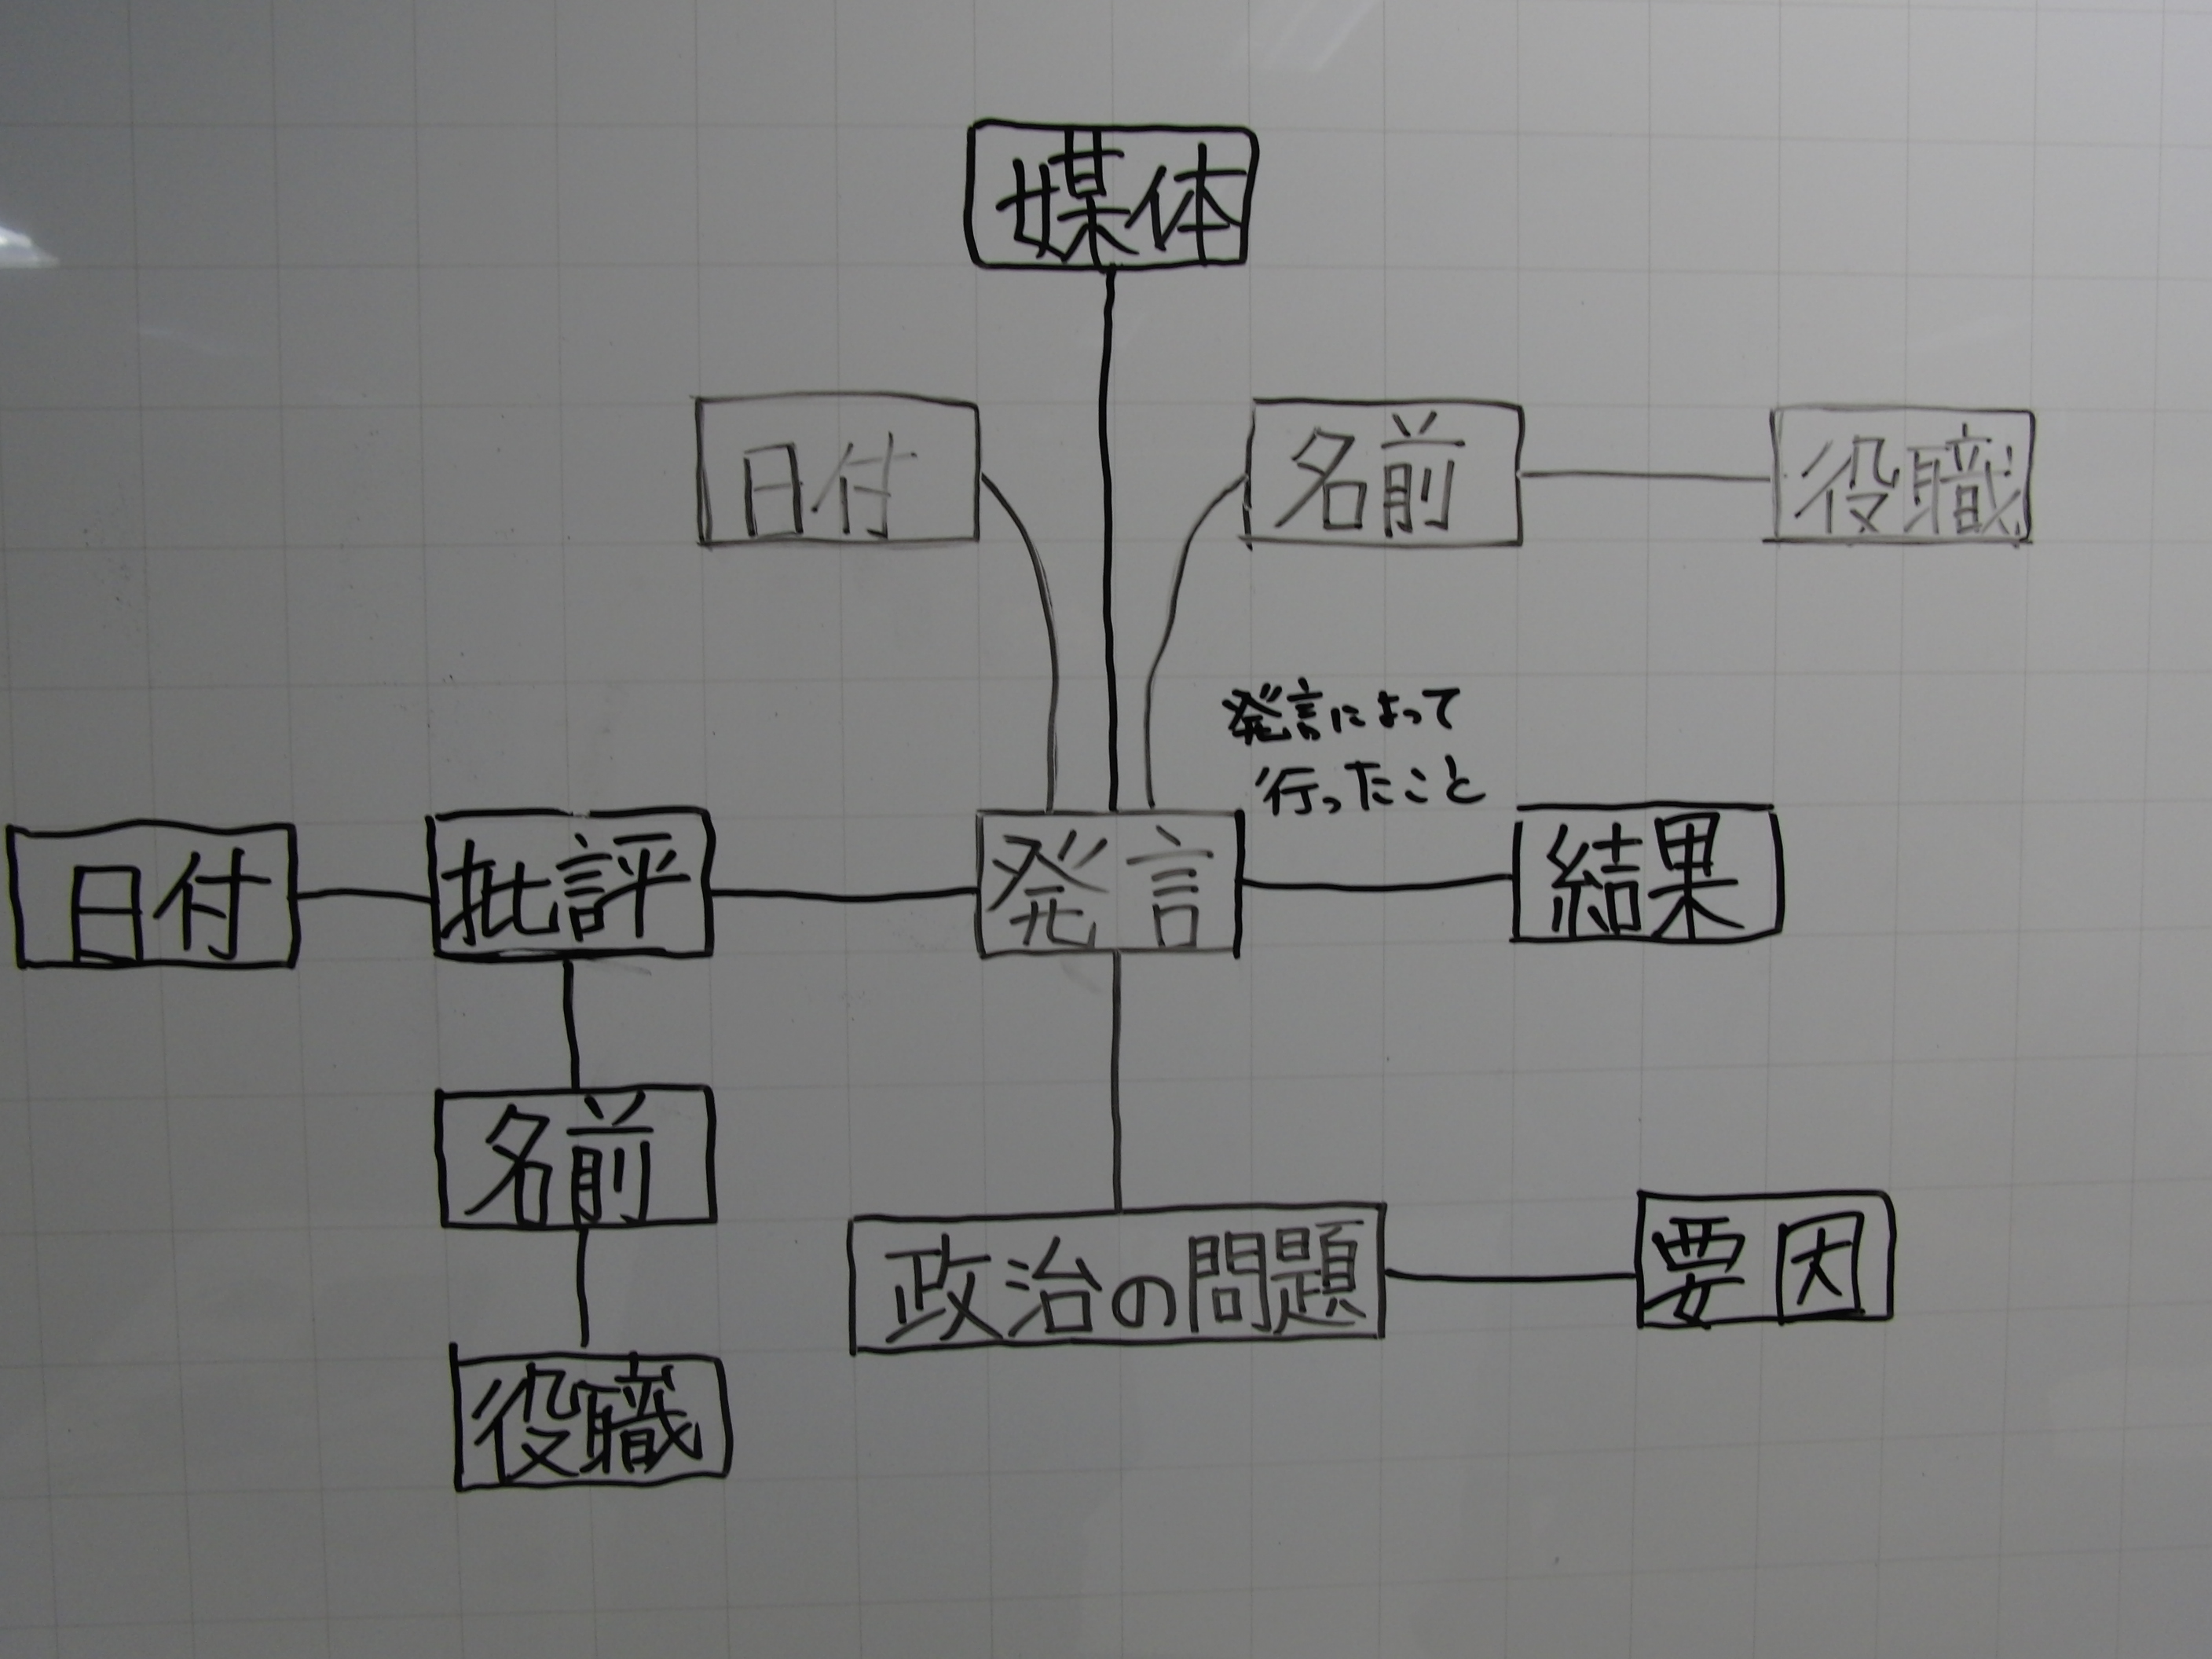 媒体
日付
名前
役職
発言によって
行ったこと
日付
批評
発言
結果
名前
政治の問題
要因
役職